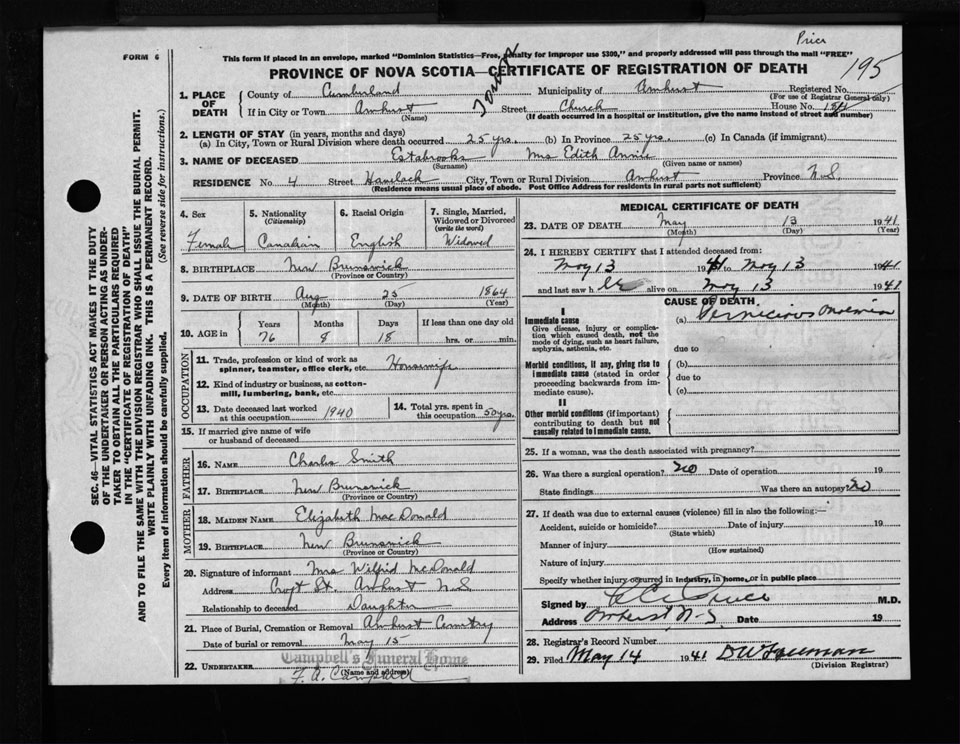 Price
FORM 6
This form if placed in an envelope, marked "Dominion Statistics—Free, Penalty for improper use $300," and properly addressed will pass through the mail "FREE"
PROVINCE OF NOVA SCOTIA—CERTIFICATE OF REGISTRATION OF DEATH
195
1. PLACE OF DEATH
County of Cumberland Municipality of Amherst Registered No.
(For use of Registrar General only)
If in City or Town Amherst Street Church House No.
(Name) (If death occurred in a hospital or institution, give the name instead of street and number)
2. LENGTH OF STAY (in years, months and days)
(a) In City, Town or Rural Division where death occurred 25 yrs. (b) In Province 75 yrs. (c) In Canada (if immigrant)
3. NAME OF DECEASED Estabrooks Mrs Edith Annie
(Surname) (Given name or names)
RESIDENCE No. 4 Street Havelock City, Town or Rural Division Amherst Province N.S.
(Residence means usual place of abode. Post Office Address for residents in rural parts not sufficient)
4. Sex Female
5. Nationality (Citizenship) Canadian
6. Racial Origin English
7. Single, Married, Widowed or Divorced (write the word) Widowed
8. BIRTHPLACE New Brunswick
(Province or Country)
9. DATE OF BIRTH Aug 25 1864
(Month) (Day) (Year)
10. AGE in Years Months Days If less than one day old
76 8 18 hrs. or min.
OCCUPATION
11. Trade, profession or kind of work as spinner, teamster, office clerk, etc. Housewife
12. Kind of industry or business, as cotton-mill, lumbering, bank, etc.
13. Date deceased last worked at this occupation 1940
14. Total yrs. spent in this occupation 50 yrs.
15. If married give name of wife or husband of deceased
FATHER
16. NAME Charles Smith
17. BIRTHPLACE New Brunswick
(Province or Country)
MOTHER
18. MAIDEN NAME Elizabeth MacDonald
19. BIRTHPLACE New Brunswick
(Province or Country)
20. Signature of informant Mrs Wilfrid McDonald
Address Croft St. Amherst N.S.
Relationship to deceased Daughter
21. Place of Burial, Cremation or Removal Amherst Cemetry
Date of burial or removal May 15
22. UNDERTAKER Campbell's Funeral Home
F. A. Campbell
(Name and address)
MEDICAL CERTIFICATE OF DEATH
23. DATE OF DEATH May 13 1941
(Month) (Day) (Year)
24. I HEREBY CERTIFY that I attended deceased from:
May 13 1941 to May 13 1941
and last saw her alive on May 13 1941
CAUSE OF DEATH
I
Immediate cause (a) Pernicious Anaemia
Give disease, injury or complication which caused death, not the mode of dying, such as heart failure, asphyxia, asthenia, etc.
due to
Morbid conditions, if any, giving rise to immediate cause (stated in order proceeding backwards from immediate cause).
(b)
due to
(c)
II
Other morbid conditions (if important) contributing to death but not causally related to immediate cause.
25. If a woman, was the death associated with pregnancy?
26. Was there a surgical operation? no Date of operation 19
State findings Was there an autopsy? no
27. If death was due to external causes (violence) fill in also the following:—
Accident, suicide or homicide? Date of injury 19
(State which)
Manner of injury
(How sustained)
Nature of injury
Specify whether injury occurred in industry, in home, or in public place
Signed by Price M.D.
Address Amherst N-S Date 19
28. Registrar's Record Number
29. Filed May 14 1941
(Division Registrar)
SEC. 46—VITAL STATISTICS ACT MAKES IT THE DUTY
OF THE UNDERTAKER OR PERSON ACTING AS UNDER-
TAKER TO OBTAIN ALL THE PARTICULARS REQUIRED
IN THE "CERTIFICATE OF REGISTRATION OF DEATH"
AND TO FILE THE SAME WITH THE DIVISION REGISTRAR WHO SHALL ISSUE THE BURIAL PERMIT.
WRITE PLAINLY WITH UNFADING INK. THIS IS A PERMANENT RECORD.
Every item of information should be carefully supplied. (See reverse side for instructions.)